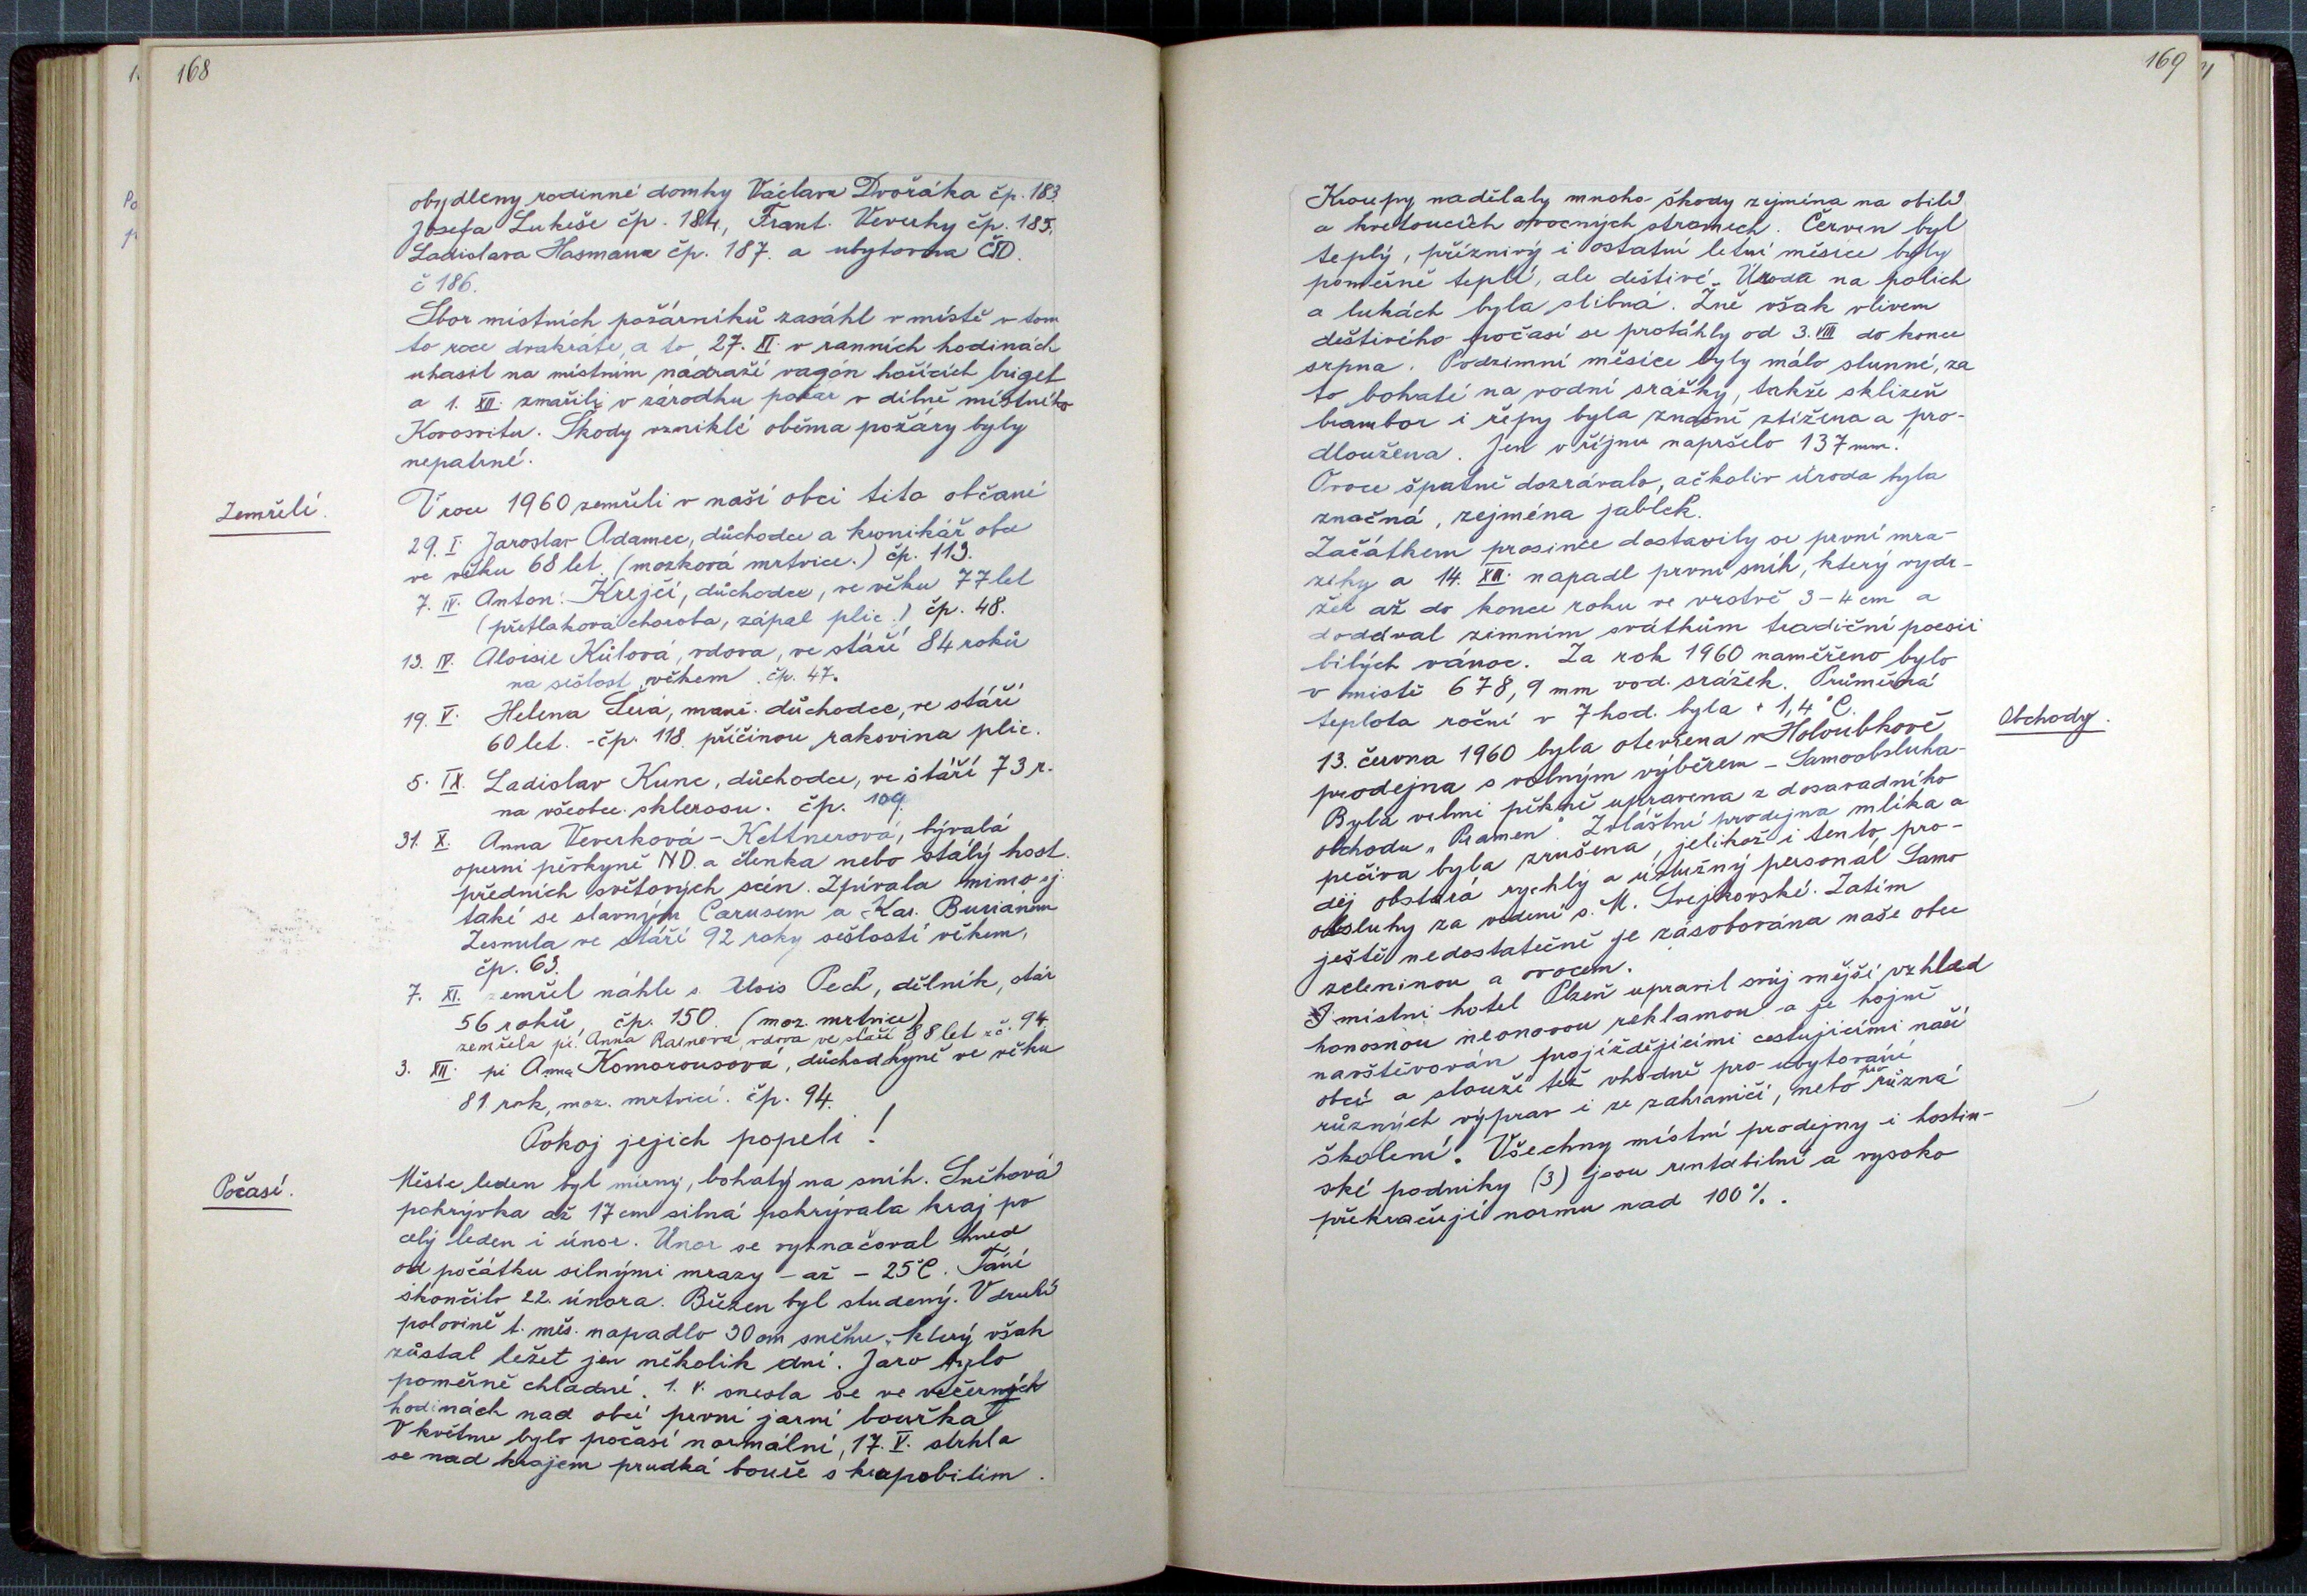 168
obydleny rodinné domky Václava Dvořáka čp. 183.
Josefa Lukeše čp. 184, Frant. Veverky čp. 185,
Ladislava Hasmana čp. 187. a ubytovna ČSD.
č 186.
Sbor místních požárníků zasáhl v místě v tom
to roce dvakráte, a to 27. XI. v ranních hodinách
uhasil na místním nádraží vagón hořících briget
a 1. XII. zmařili v zárodku požár v dílně místního
Kovosvitu. Škody vzniklé oběma požáry byly
nepatrné.
Zemřelí.
V roce 1960 zemřeli v naší obci tito občané
29. I. Jaroslav Adamec, důchodce a kronikář obce
ve věku 68 let. (mozková mrtvice.) čp. 113.
7. IV. Anton. Krejčí, důchodce, ve věku 77 let
(přetlaková choroba, zápal plic.) čp. 48.
13. IV. Aloisie Kůlová, vdova, ve stáří 84 roků
na sešlost věkem. čp. 47.
19. V. Helena Šerá, manž. důchodce, ve stáří
60 let. - čp. 118. příčinou rakovina plic.
5. IX. Ladislav Kunc, důchodce, ve stáří 73 r.
na všeobec. sklerosu. čp. 109.
31. X. Anna Veverková - Kettnerová, bývalá
operní pěvkyně ND. a členka nebo stálý host.
předních světových scén. Zpívala mimo j.
také se slavným Carusem a Kar. Burianem
Zesnula ve stáří 92 roky sešlostí věkem,
čp. 63.
7. XI. zemřel náhle s. Alois Pech, dělník, stár
56 roků, čp. 150. (moz. mrtvice)
zemřela pí. Anna vdova ve stáří 88 let z č. 94.
3. XII. pí Anna Komorousová, důchodkyně ve věku
81 rok, moz. mrtvicí. čp. 94.
Pokoj jejich popeli!
Počasí.
Měsíc leden byl mírný, bohatý na sníh. Sněhová
pokrývka až 17 cm silná pokrývala kraj po
celý leden i únor. Únor se vyznačoval hned
od počátku silnými mrazy - až - 25°C. Tání
skončilo 22. února. Březen byl studený. V druhé
polovině t. měs. napadlo 30 cm sněhu, který však
zůstal ležet jen několik dní. Jaro bylo
poměrně chladné. 1. V. snesla se ve večerných
hodinách nad obcí první jarní bouřka
V květnu bylo počasí normální, 17. V. strhla
se nad krajem prudká bouře s krupobitím.
169
Kroupy nadělaly mnoho škody zejména na obilí
a kvetoucích ovocných stromech. Červen byl
teplý, příznivý i ostatní letní měsíce byly
poměrně teplé, ale deštivé. Úroda na polích
a lukách byla slibná. Žně však vlivem
deštivého počasí se protáhly od 3. VIII do konce
srpna. Podzimní měsíce byly málo slunné, za
to bohaté na vodní srážky, takže sklizeň
brambor i řepy byla značně ztížena a pro-
dloužena. Jen v říjnu napršelo 137 mm!
Ovoce špatně dozrávalo, ačkoliv úroda byla
značná, zejména jablek.
Začátkem prosince dostavily se první mra-
zíky a 14. XII. napadl první sníh, který vydr-
žel až do konce roku ve vrstvě 3-4 cm a
dodával zimním svátkům tradiční poesii
bílých vánoc. Za rok 1960 naměřeno bylo
v místě 678,9 mm vod. srážek. Průměrná
teplota roční v 7 hod. byla + 1,4°C.
Obchody.
13. června 1960 byla otevřena v Holoubkově
prodejna s volným výběrem - Samoobsluha-
Byla velmi pěkně upravena z dosavadního
obchodu „Pramen". Zvláštní prodejna mléka a
pečiva byla zrušena, jelikož i tento pro-
dej obstará rychlý a úslužný personál Samo
obsluhy za vedení s. M. Svejkovské. Zatím
ještě nedostatečně je zásobována naše obec
zeleninou a ovocem.
I místní hotel Plzeň upravil svůj vnější vzhled
honosnou neonovou reklamou a je hojně
navštěvován projíždějícími cestujícími naší
obcí a slouží též vhodně pro ubytování
různých výprav i ze zahraničí, nebo pro různá
školení. Všechny místní prodejny i hostin-
ské podniky (3) jsou rentabilní a vysoko
překračují normu nad 100%.